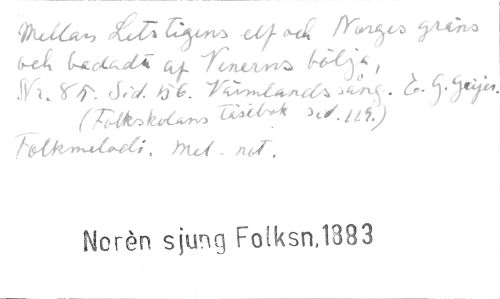 Mellan Letstigens elf och Norges gräns
och badada af Venerns bölja,
Nr. 85. Sid. 156. Värmlandssång. E. G. Geijer.
(Folkskolans Läsebok sid. 119.)
Folkmelodi. Mel-not.
Norèn sjung Folksn,1883